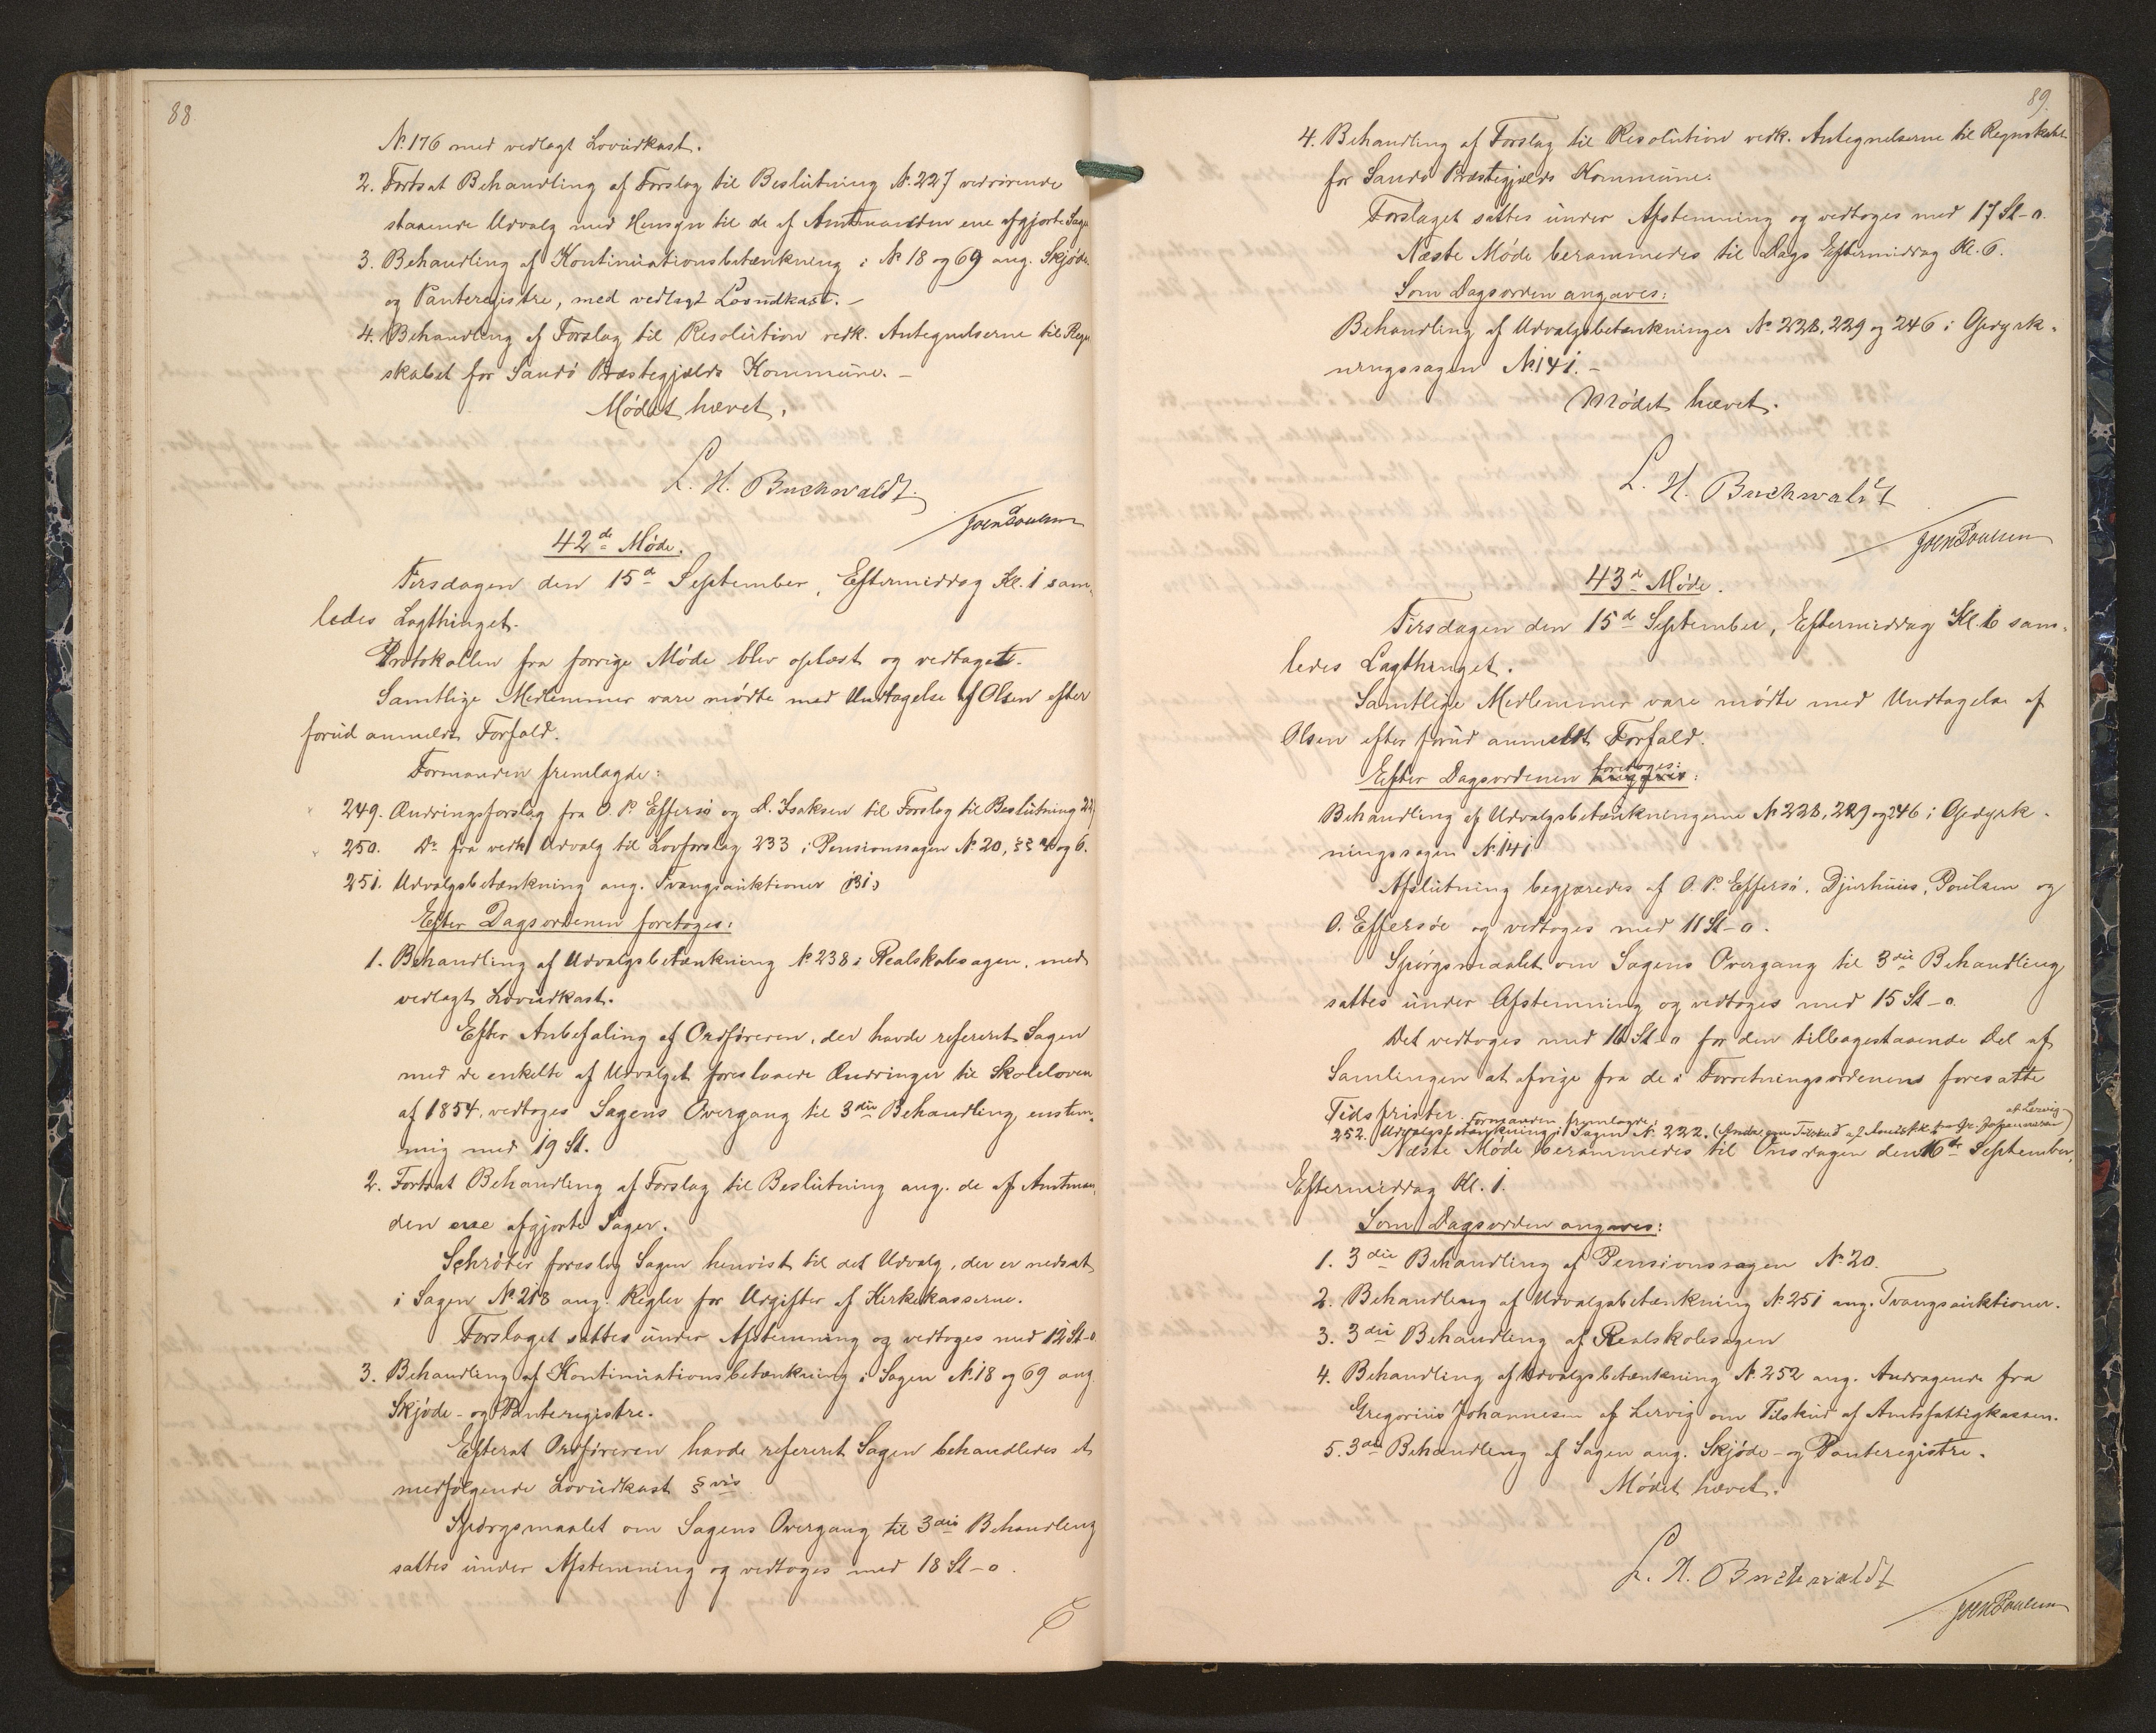 88
No. 176 med vedlagt Lovudkast.
2. Fortsat Behandling af Forslag til Beslutning No. 227 vedrørende
staaende Udvalg med Hensyn til de af Amtmanden ene afgjorte Sager
3. Behandling af Kontinuationsbetænkning i No 18 og 69 ang. Skjøde-
og Panteregistre, med vedlagt Lovudkast. –
4. Behandling af Forslag til Resolution vedk. Antegnelserne til Regn
skabet for Sandø Præstegjælds Kommune. –
Mødet hævet.
L. H. Buchwaldt.
Joen Poulsen
42de Møde.
Tirsdagen den 15de September, Eftermiddag Kl. 1 sam-
ledes Lagthinget.
Protokollen fra forrige Møde blev oplæst og vedtaget.
Samtlige Medlemmer vare mødte med Undtagelse af Olsen efter
forud anmeldt Forfald.
Formanden fremlagde:
249. Ændringsforslag fra O. P. Effersø og D. Isaksen til Forslag til Beslutning
250. Do fra vedk. Udvalg til Lovforslag 233 i Pensionssagen No. 20, §§ 4 og 6.
251. Udvalgsbetænkning ang. Tvangsauktioner
Efter Dagsordenen foretoges:
1. Behandling af Udvalgsbetænkning No 238 i Realskolesagen, med
vedlagt Lovudkast.
Efter Anbefaling af Ordføreren, der havde refereret Sagen
med de enkelte af Udvalget foreslaaede Ændringer til Skoleloven
af 1854, vedtoges Sagens Overgang til 3die Behandling enstem-
mig med 19 St.
2. Fortsat Behandling af Forslag til Beslutning ang. de af Amtman-
den ene afgjorte Sager.
Schrøter foreslog Sagen henvist til det Udvalg, der er nedsat
i Sagen No 218 ang. Regler for Udgifter af Kirkekasserne.
Forslaget sattes under Afstemning og vedtoges med 12 St–0
3. Behandling af Kontinuationsbetænkning i Sagen No. 18 og 69 ang.
Skjøde- og Panteregistre.
Efterat Ordføreren havde refereret Sagen behandledes et
medfølgende Lovudkast §vis
Spørgsmaalet om Sagens Overgang til 3die Behandling
sattes under Afstemning og vedtoges med 18 St–0.
89.
4. Behandling af Forslag til Resolution vedk. Antegnelserne til Regnskabet
for Sandø Præstegjælds Kommune.
Forslaget sattes under Afstemning og vedtoges med 17 St–0.
Næste Møde berammedes til Dags Eftermiddag Kl. 6.
Som Dagsorden angaves:
Behandling af Udvalgsbetænkninger No 228, 229 og 246 i Opdyrk-
ningssagen No 141. –
Mødet hævet.
L. H. Buchwaldt
Joen Poulsen
43de Møde.
Tirsdagen den 15de September, Eftermiddag Kl. 6 sam-
ledes Lagthinget.
Samtlige Medlemmer vare mødte med Undtagelse af
Olsen efter forud anmeldt Forfald.
Efter Dagsordenen foretoges:
Behandling af Udvalgsbetænkningerne No 228, 229 og 246 i Opdyrk-
ningssagen No. 141
Afslutning begjæredes af O. P. Effersø, Djurhuus, Poulsen og
O. Effersøe og vedtoges med 11 St–0.
Spørgsmaalet om Sagens Overgang til 3die Behandling
sattes under Afstemning og vedtoges med 15 St–0
Det vedtoges med 16 St–0 for den tilbagestaaende Del af
Samlingen at afvige fra de i Forretningsordenens foresatte
Tidsfrister.
Formanden fremlagde:
252. Udvalgsbetænkning i Sagen No. 222. (Andr. om Tilskud af Amtsf.k. fra Gr. Johannesen af Lervig)
Næste Møde berammedes til Onsdagen den 16de September,
Eftermiddag Kl. 1.
Som Dagsorden angaves:
1. 3die Behandling af Pensionssagen No. 20.
2. Behandling af Udvalgsbetænkning No 251 ang. Tvangsauktioner.
3. 3die Behandling af Realskolesagen
4. Behandling af Udvalgsbetænkning No. 252 ang. Andragende fra
Gregorius Johannesen af Lervig om Tilskud af Amtsfattigkassen.
5. 3die Behandling af Sagen ang. Skjøde- og Panteregistre.
Mødet hævet.
L. H. Buchwaldt
Joen Poulsen